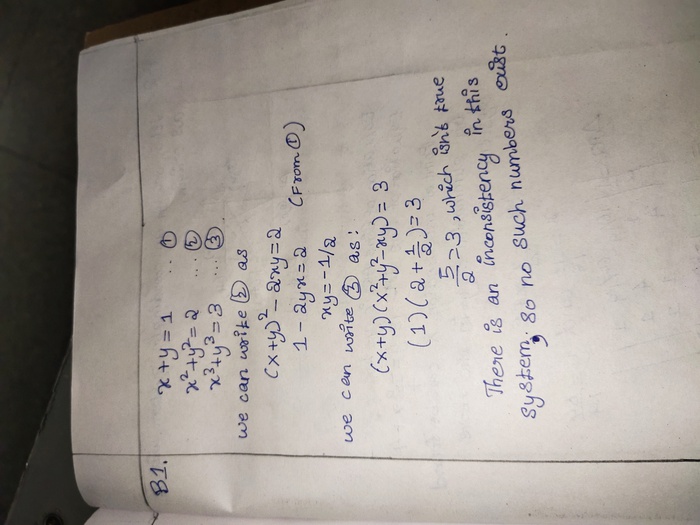 B1. x+y=1 .. ①
x²+y²=2 ... ②
x³+y³=3 ... ③
we can write ② as
(x+y)²-2xy=2
1-2yx=2 (From ①)
xy=-1/2
we can write ③ as:
(x+y)(x²+y²-xy)=3
(1)(2+1/2)=3
5/2=3, which isn't true
There is an inconsistency in this
system; so no such numbers exist.